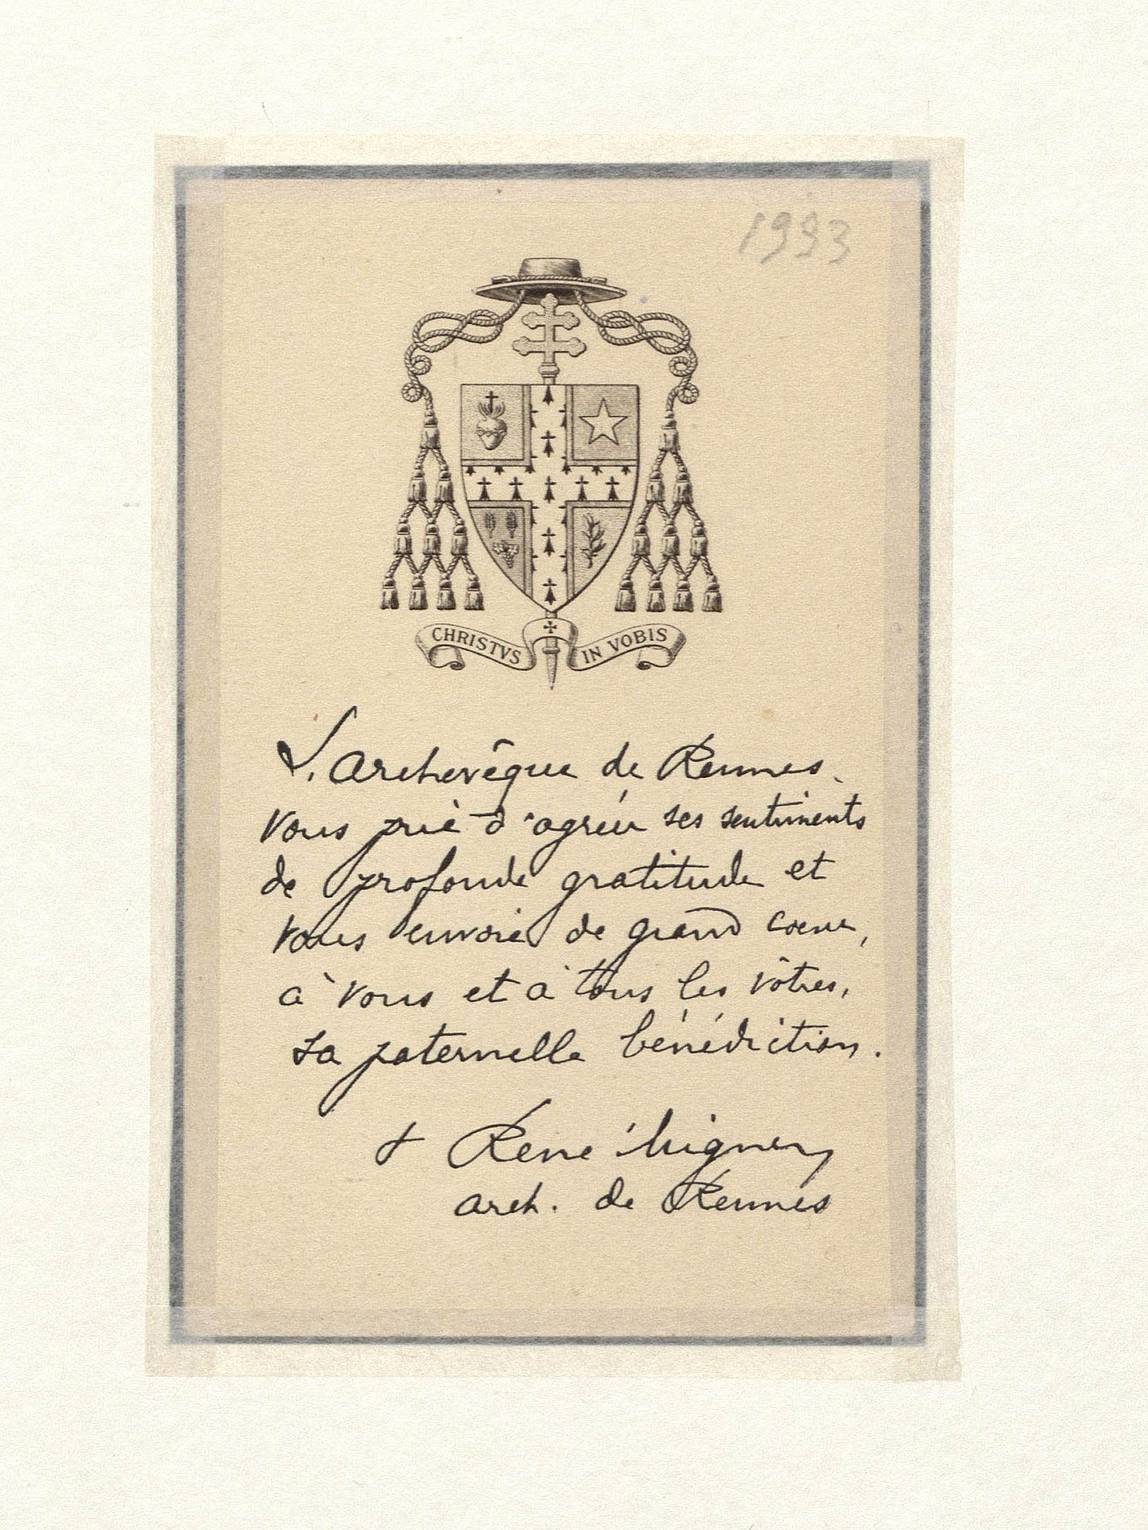 1993
CHRISTVS IN VOBIS
L'Archevêque de Rennes
vous prie d'agréer ses sentiments
de profonde gratitude et
vous envoie de grand coeur,
à vous et à tous les vôtres,
sa paternelle bénédiction.
+ René Mignen
arch. de Rennes